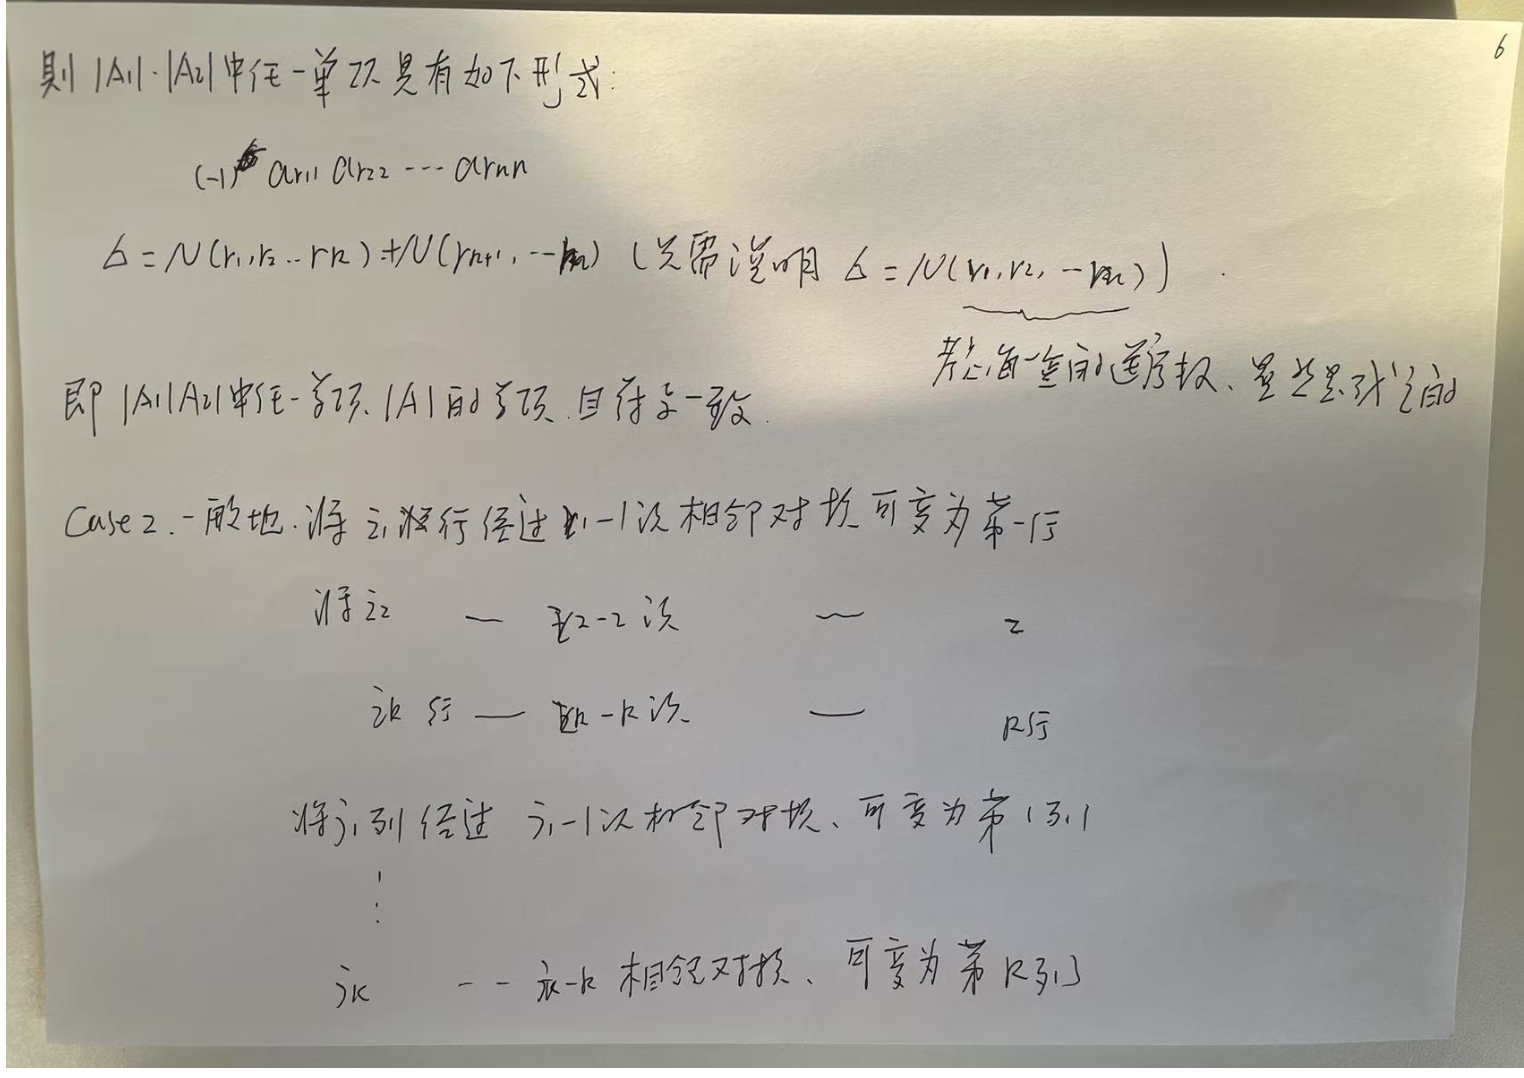 6
则 |A₁|·|A₂| 中任一单项具有如下形式:
(-1) a_{r₁1} a_{r₂2} ⋯ a_{rₙn}
δ = N(r₁, r₂ .. r_k) + N(r_{k+1}, -- r_n) (只需说明 δ = N(r₁, r₂, -- r_n))
考虑每一查的逆序数、显然是成立的
即 |A₁||A₂| 中任一单项、|A| 的单项 且符号一致.
Case 2. 一般地. 将 i₁ 行经过 i₁-1 次相邻对换可变为第一行
将 i₂ — i₂-2 次 — 2
i_k 行 — i_k-k 次 — k行
将 j₁ 列经过 j₁-1 次相邻对换、可变为第 1 列
⋮
j_k -- j_k-k 相邻对换、可变为第 k 列